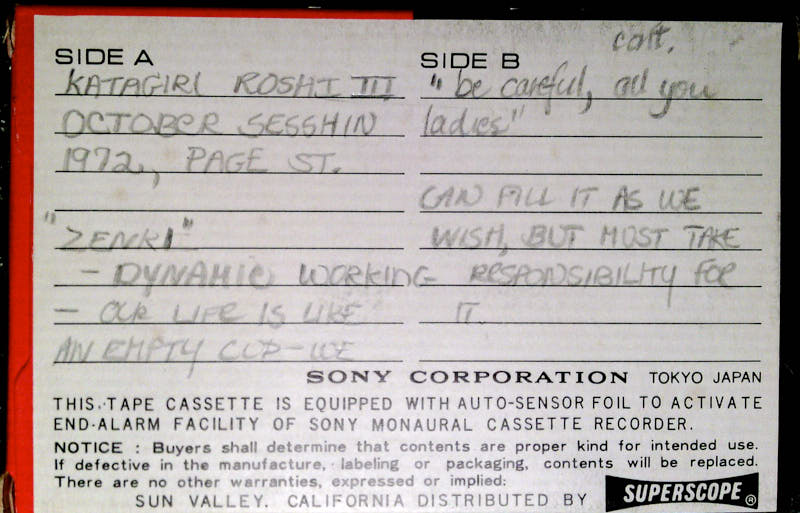 SIDE A
KATAGIRI ROSHI III
OCTOBER SESSHIN
1972, PAGE ST.
"ZENKI"
- DYNAMIC WORKING
- OUR LIFE IS LIKE
AN EMPTY CUP-WE
SIDE B
cont.
"be careful, all you
ladies"
CAN FILL IT AS WE
WISH, BUT MUST TAKE
RESPONSIBILITY FOR
IT.
SONY CORPORATION TOKYO JAPAN
THIS TAPE CASSETTE IS EQUIPPED WITH AUTO-SENSOR FOIL TO ACTIVATE
END-ALARM FACILITY OF SONY MONAURAL CASSETTE RECORDER.
NOTICE : Buyers shall determine that contents are proper kind for intended use.
If defective in the manufacture, labeling or packaging, contents will be replaced.
There are no other warranties, expressed or implied:
SUN VALLEY, CALIFORNIA DISTRIBUTED BY SUPERSCOPE®